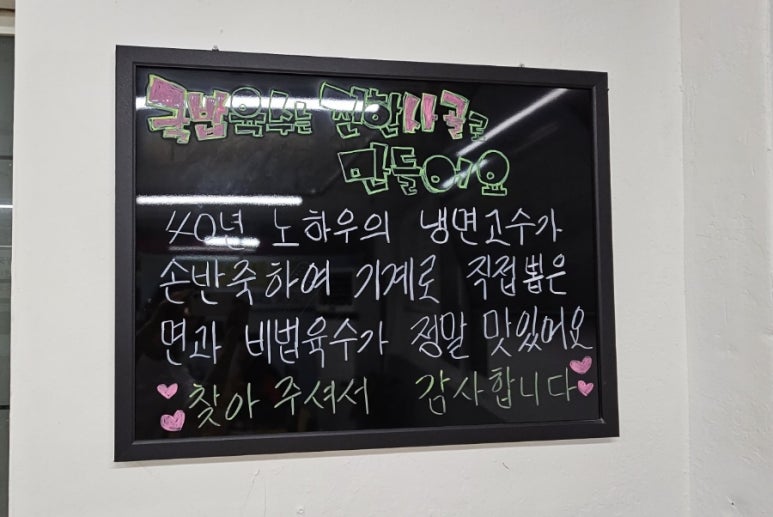 국밥육수는 진한사골로
만들어요
40년 노하우의 냉면고수가
손반죽하여 기계로 직접뽑은
면과 비법육수가 정말 맛있어요
찾아 주셔서 감사합니다